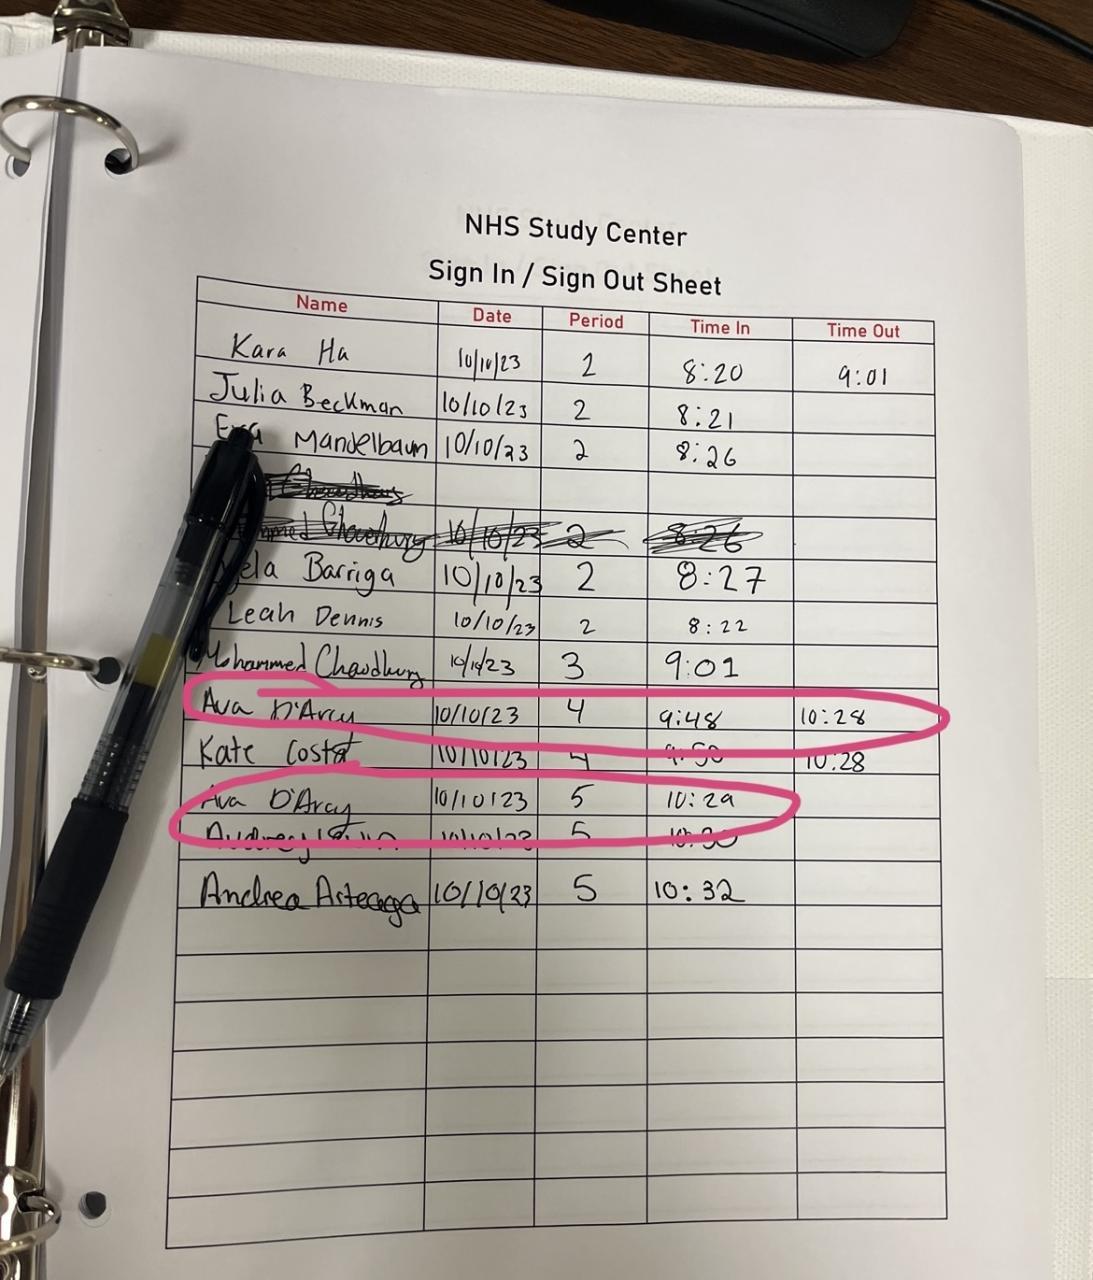 NHS Study Center
Sign In / Sign Out Sheet
Name Date Period Time In Time Out
Kara Ha 10/10/23 2 8:20 9:01
Julia Beckman 10/10/23 2 8:21
Mandelbaum 10/10/23 2 8:26
Choudhury
Chowdhury 10/10/23 2 8:26
Barriga 10/10/23 2 8:27
Leah Dennis 10/10/23 2 8:22
Mohammed Chowdhury 10/10/23 3 9:01
Ava D'Arcy 10/10/23 4 9:48 10:28
Kate Costa 10/10/23 4 9:50 10:28
Ava D'Arcy 10/10/23 5 10:29
Audrey 10/10/23 5 10:30
Andrea Arteaga 10/10/23 5 10:32